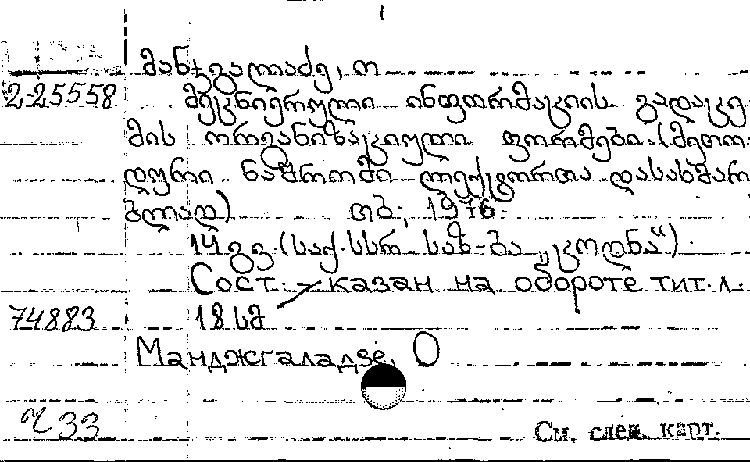 მანჯგალაძე, ო
2-25558 მეცნიერული ინფორმაციის გადაცე-
მის ორგანიზაციული ფორმები. (მეთო-
დური ნაშრომი ლექტორთა დასახმარ
ებლად) თბ., 1976.
14 გვ. (საქ. სსრ საზ-ბა „ცოდნა“).
Сост. указан на обороте тит. л.
74883 18 სმ
Манджгаладзе, О
Ч 33
См. след. карт.